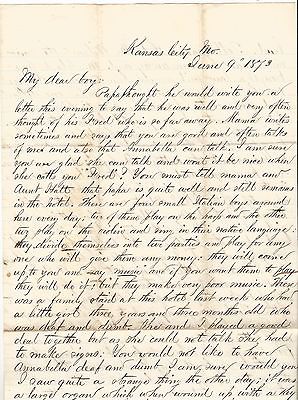 Kansas City, Mo.
June 9" 1873
My dear boy:
Papa thought he would write you a
letter this evening to say that he was well and very often
thought of his Fred who is so far away. Mama writes
sometimes and says that you are good and often talks
of me and also that Annabella can talk. I am sure
you are glad she can talk and wont it be nice when
she calls you Fred? You must tell mama and
Aunt that papa is quite well and still remains
in the hotel. There are four small Italian boys around
here every day; two of them play on the harp and the other
two play on the violin and sing in their native language:
they divide themselves into two parties and play for any
one who will give them any money: they will come
up to you and say music and if you want them to play
they will do it; but they make very poor music. There
was a family staid at this hotel last week who had
a little girl three years and three months old who
was deaf and dumb. She and I played a good
deal together but as she could not talk she had
to make signs. You would not like to have
Annabella deaf and dumb I am sure would you
I saw quite a strange thing the other day; it was
a large organ which when wound up with a key